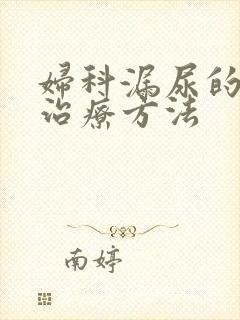 婦科漏尿的
治療方法
南婷